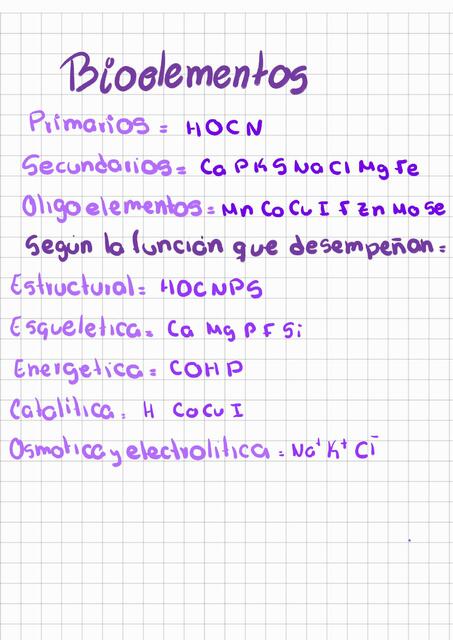 Bioelementos
Primarios = HOCN
Secundarios = Ca P K S Na Cl Mg Fe
Oligo elementos = Mn Co Cu I F Zn Mo Se
Según la función que desempeñan =
Estructural = HOCNPS
Esqueletica = Ca Mg P F Si
Energetica = COHP
Catalitica = H Co Cu I
Osmotica y electrolitica = Na⁺ K⁺ Cl⁻